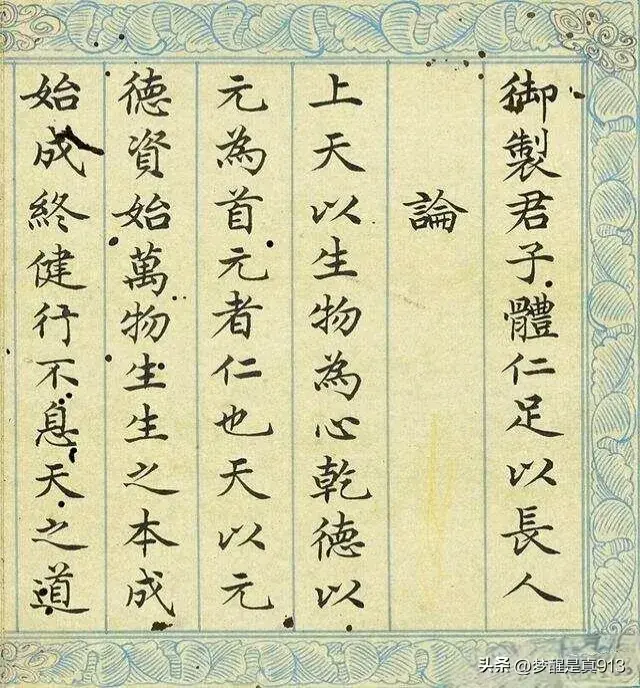 御製君子體仁足以長人
論
上天以生物為心乾德以
元為首元者仁也天以元
德資始萬物生生之本成
始成終健行不息天之道
头条 @梦醒是真913